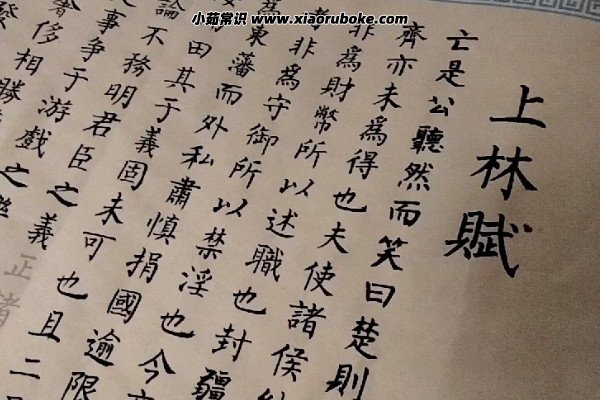 小茹常识 www.xiaoruboke.com
上林賦
亡是公聽然而笑曰楚則
齊亦未為得也夫使諸侯
者非為財幣所以述職也封疆
者非為守御所以禁淫也今
為東藩而外私肅慎捐國逾限
田其于義固未可也且二
論不務明君臣之義正諸
事爭于游戲之
奢侈相勝